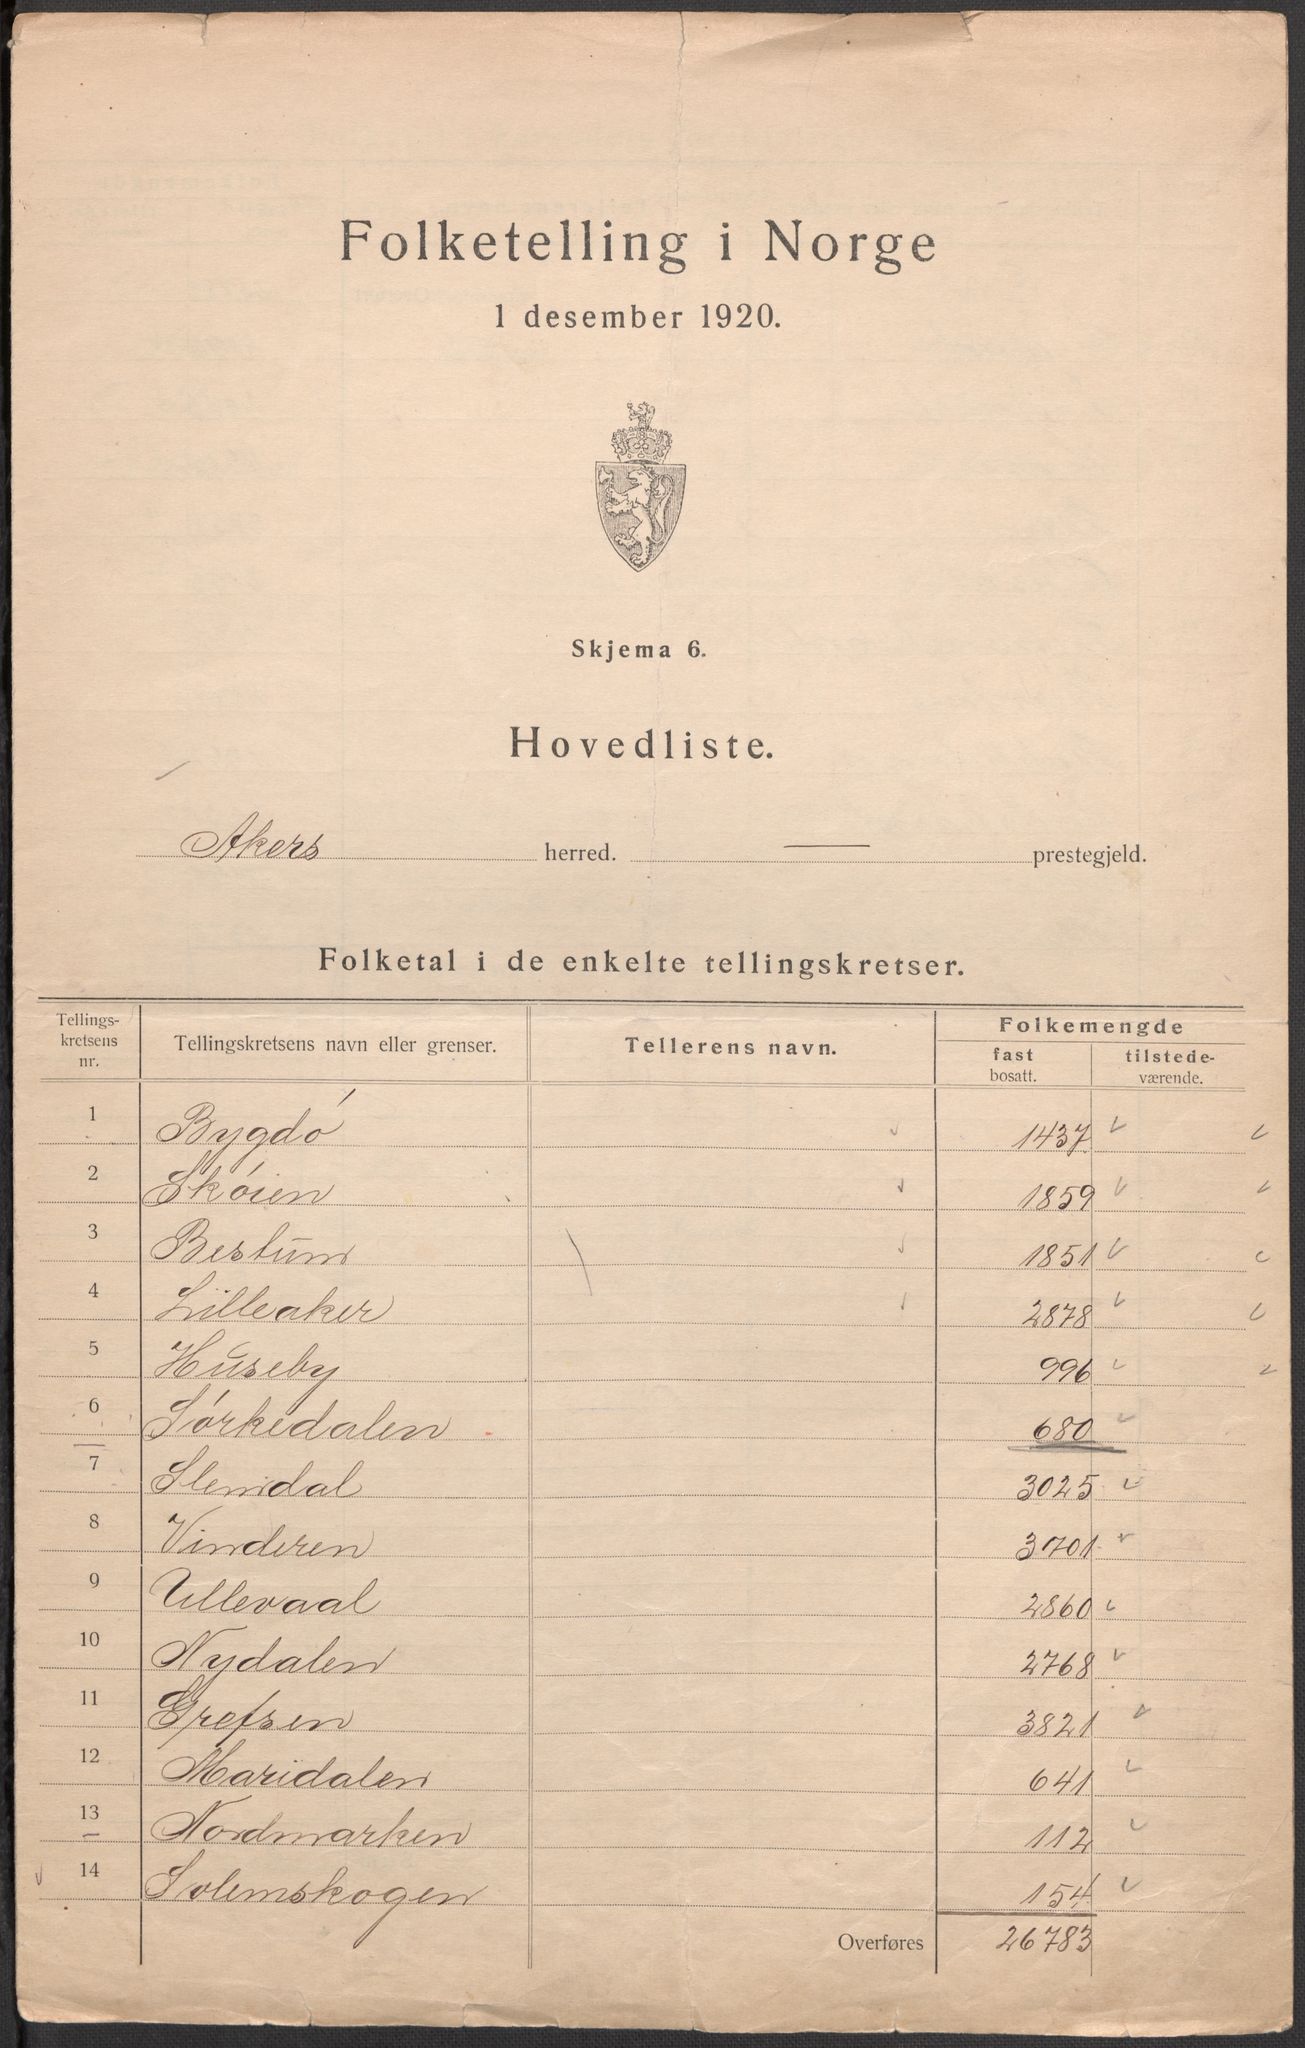 Folketelling i Norge
1 desember 1920.
Skjema 6.
Hovedliste.
Akers herred. — prestegjeld.
Folketal i de enkelte tellingskretser.
Tellings-kretsens nr. Tellingskretsens navn eller grenser. Tellerens navn. Folkemengde fast bosatt. tilstede-værende.
1 Bygdö 1437
2 Skøien 1859
3 Bestum 1851
4 Lilleaker 2878
5 Huseby 996
6 Sørkedalen 680
7 Slemdal 3025
8 Vinderen 3701
9 Ullevaal 2860
10 Nydalen 2768
11 Grefsen 3821
12 Maridalen 641
13 Nordmarken 112
14 Solemskogen 154
Overføres 26783